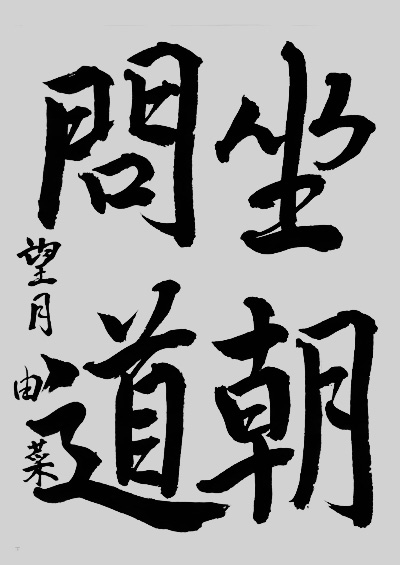 坐朝
問道
望月由菜